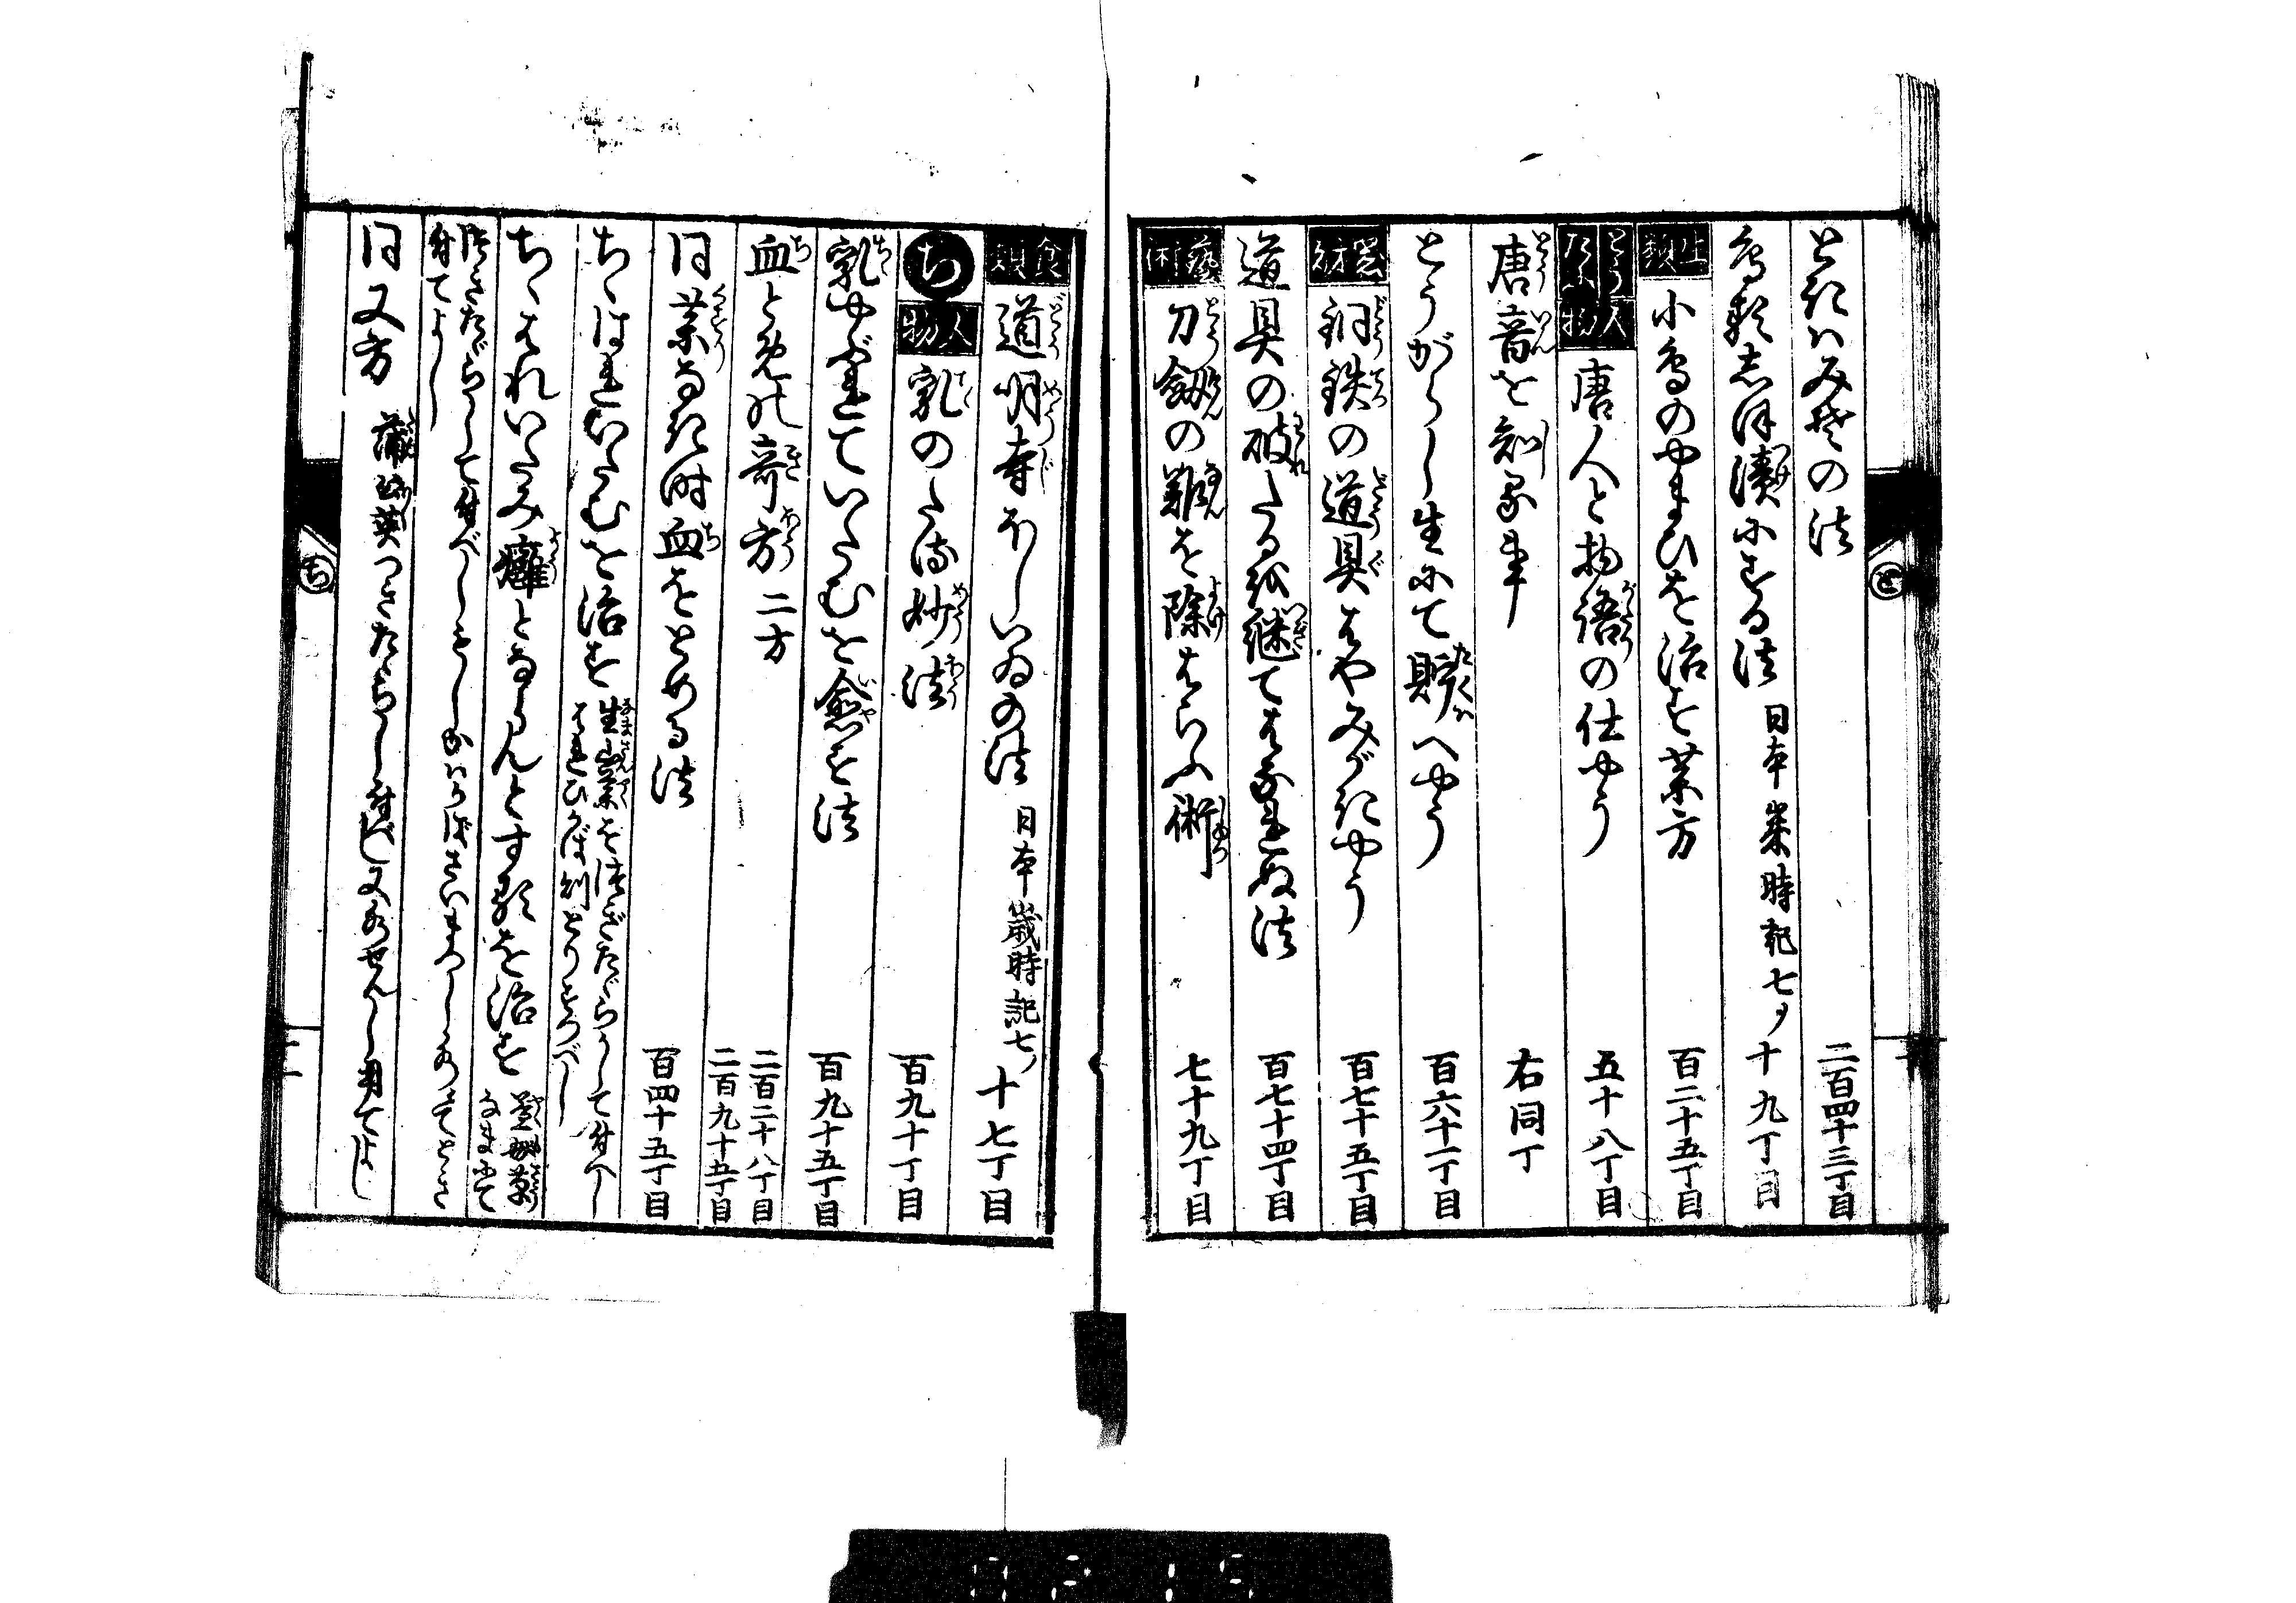 ときはみそその法 二百四十三丁目
鳥類しほ漬にする法 日本歳時記七ノ十九丁目
生類 小鳥のやまひを治す薬方 百二十五丁目
人物 唐人と物語の仕やう 五十八丁目
唐音を知る事 右同丁
とうがらし生にて貯へやう 百六十一丁目
銅鉄の道具はやみがきやう 百七十五丁目
道具の破たるを継てはなれぬ法 百七十四丁目
藝術 刀劔の難を除はらふ術 七十九丁目
食類 道明寺ほしいゐの法 日本歳時記七ノ十七丁目
ち 人物 乳のたる妙法 百九十丁目
乳やぶれていたむを愈す法 百九十五丁目
血とめの奇方 二方 二百二十八丁目 二百九十五丁目
同薬なき時血をとめる法 百四十五丁目
ちゝはれいたむを治す 生山薬をつきたゞらかして付べし
はれひかば早くとりすつべし
ちゝはれいたみ癰とならんとする類を治す なまにて
つきたゞらして付べしもしかはかばさいまよし
付てよし
同又方 蒲公英つきたゞらし付べし又せんし用てよし
と
ち